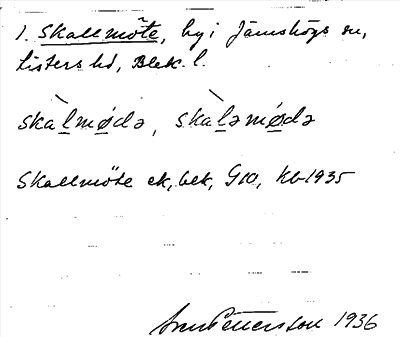 1. Skallmöte, by i Jämshögs sn,
Listers hd, Blek. l.
skàlmødə, skàləmødə
Skallmöte ek, bek, G10, Kb 1935
Pettersson 1936